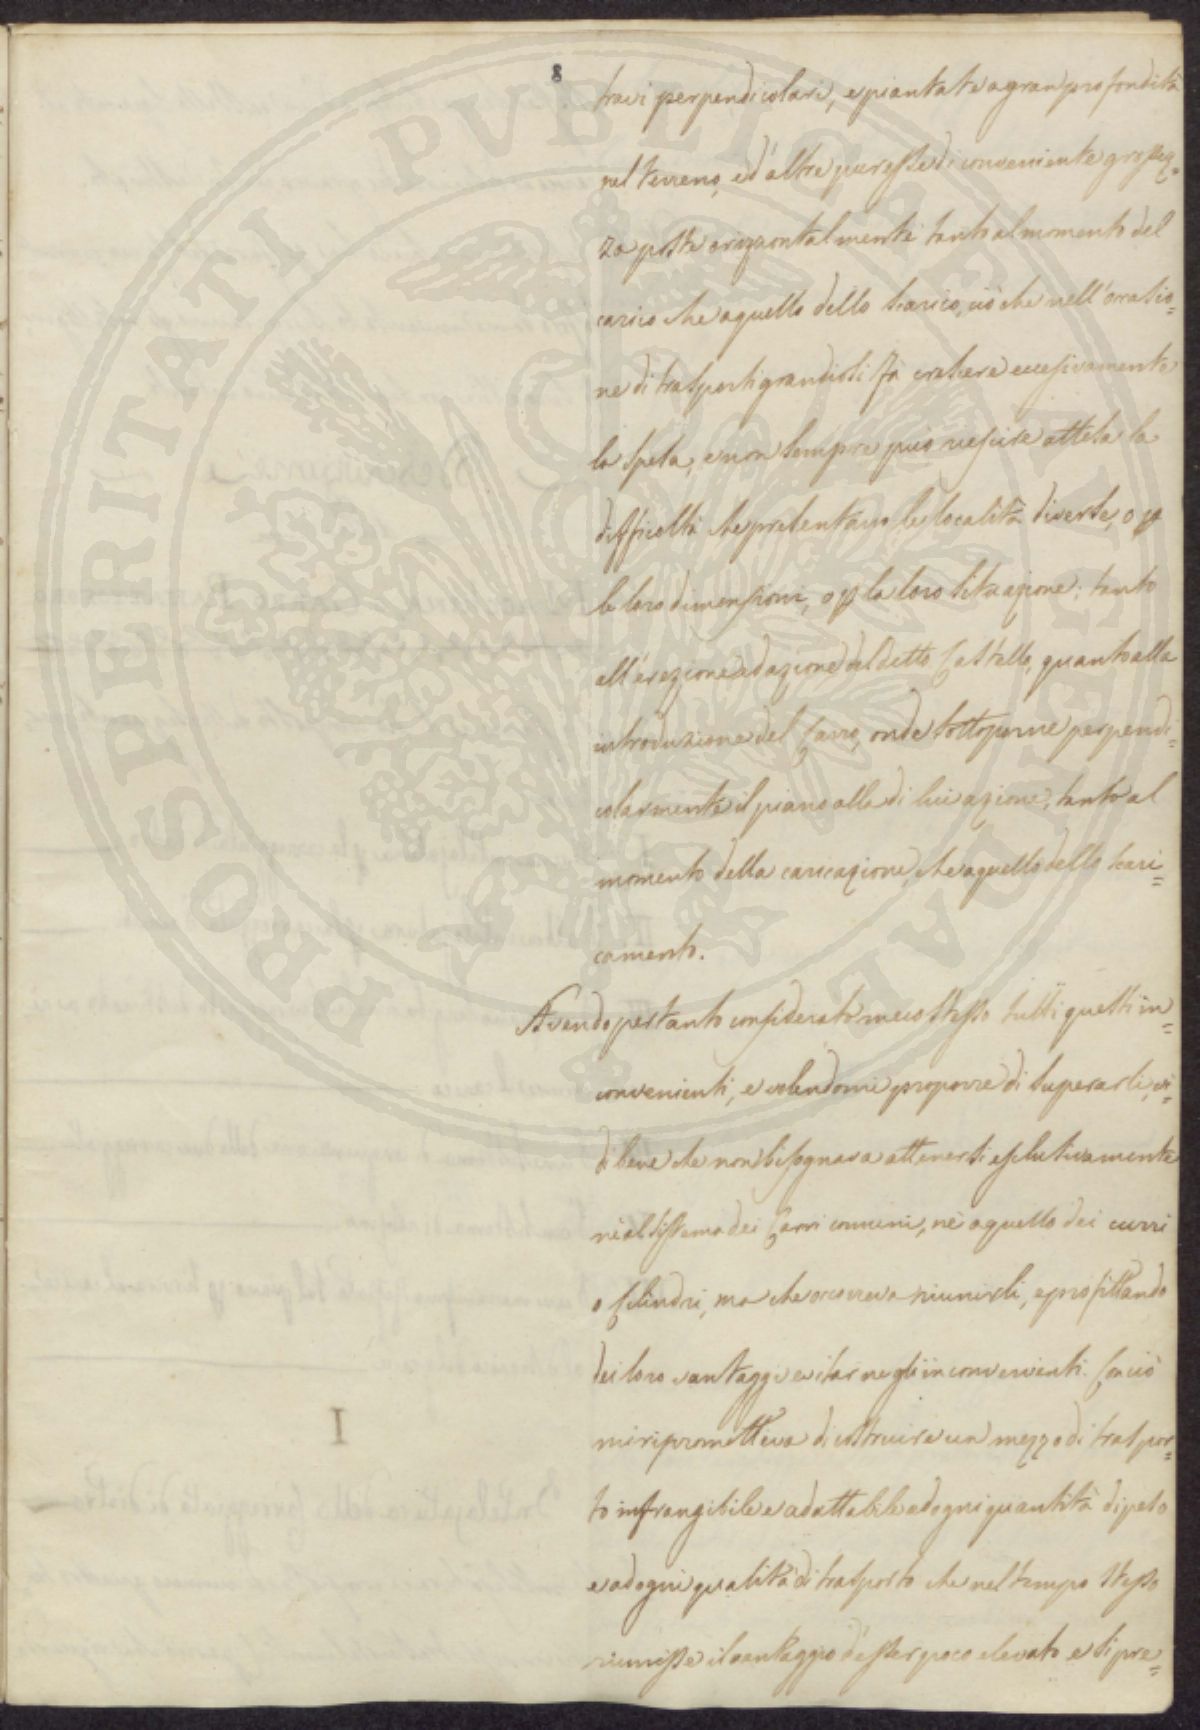 8
travi perpendicolari, e piantate a gran profondità
nel terreno, ed altre pur esse di conveniente grossez=
za poste orizzontalmente tanto al momento del
carico che a quello dello scarico, ciò che nell'
ne di trasporti grandiosi fà crescere eccessivamente
la spesa, e non sempre può riescire attesa la
difficoltà che presentano le località diverse, o p
le loro dimensioni, o p la loro situazione; tanto
all'erezione ed azione del detto Castello, quanto alla
introduzione del Carro, onde sottoporne perpendi=
colarmente il piano alla di lui azione, tanto al
momento della caricazione, che a quello dello scari=
camento.
Avendo pertanto considerato meco stesso tutti questi in=
convenienti, e volendomi proporre di superarli, vi=
di bene che non bisognava attenersi esclusivamente
nè al sistema dei Carri comuni, nè a quello dei curri
o Cilindri, ma che occorreva riunirli, e profittando
dei loro vantaggi evitarne gli inconvenienti. Con ciò
mi riprometteva di costruire un mezzo di traspor=
to infrangibile e adattabile ad ogni quantità di peso
e ad ogni qualità di trasporto che nel tempo stesso
riunisse il vantaggio d'esser poco elevato e si pre=
I
PROSPERITATI PVBLICAE AVGENDAE